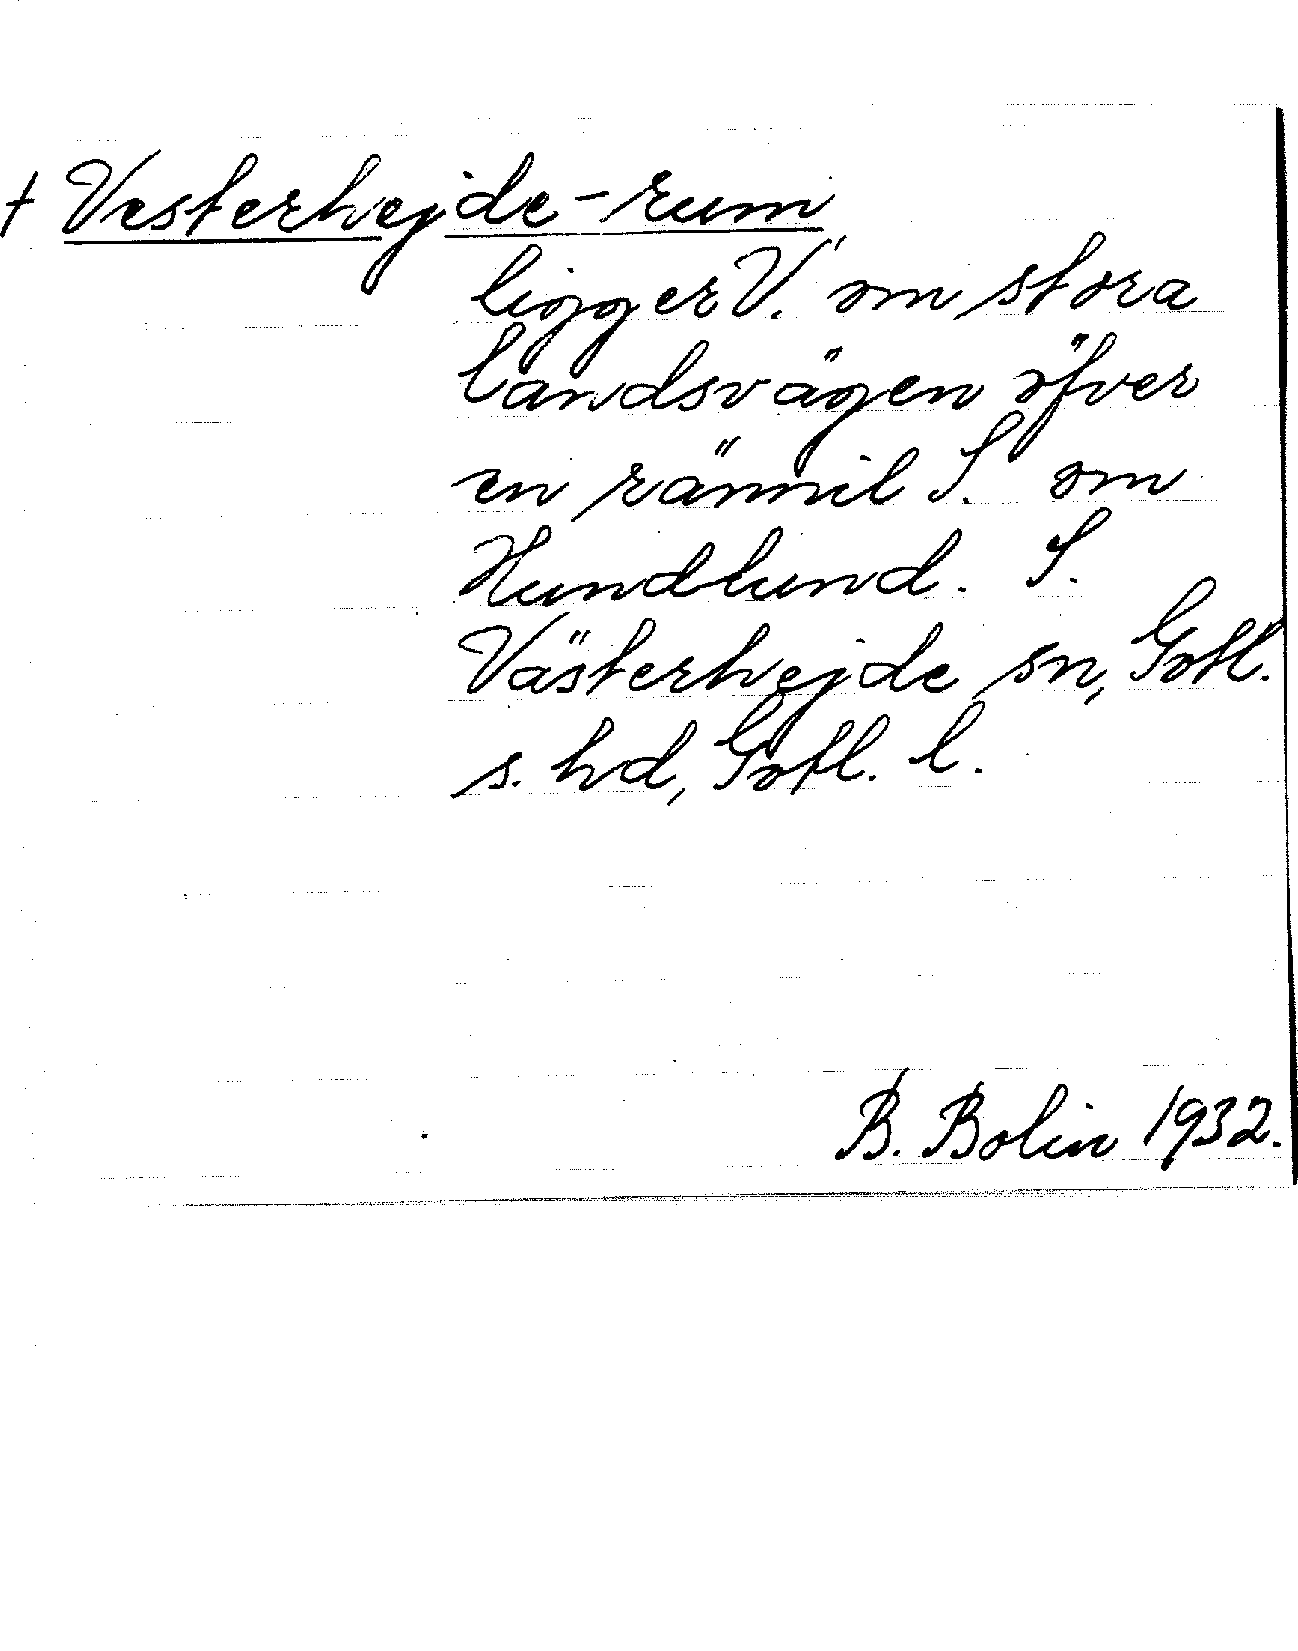 † Vesterhejde-rum,
ligger V. om stora
landsvägen öfver
en rännil S. om
Hundlund. S.
Västerhejde sn, Gotl.
s. hd, Gotl. l.
B. Bolin 1932.